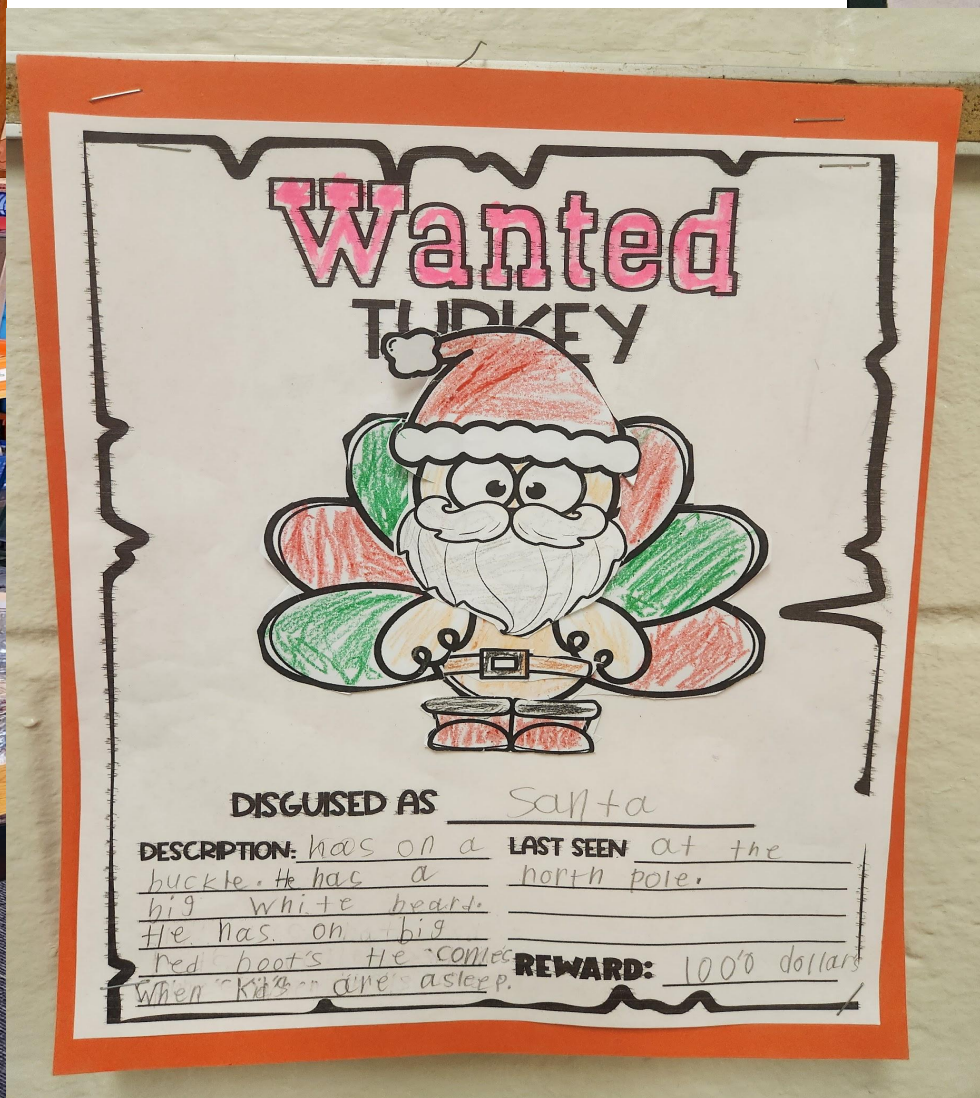 Wanted
TURKEY
DISGUISED AS santa
DESCRIPTION: haos on a
buckle. He has a
big white beard.
He has on big
red boot's He comes
When kid's are asleep.
LAST SEEN at the
north pole.
REWARD: 100'0 dollars